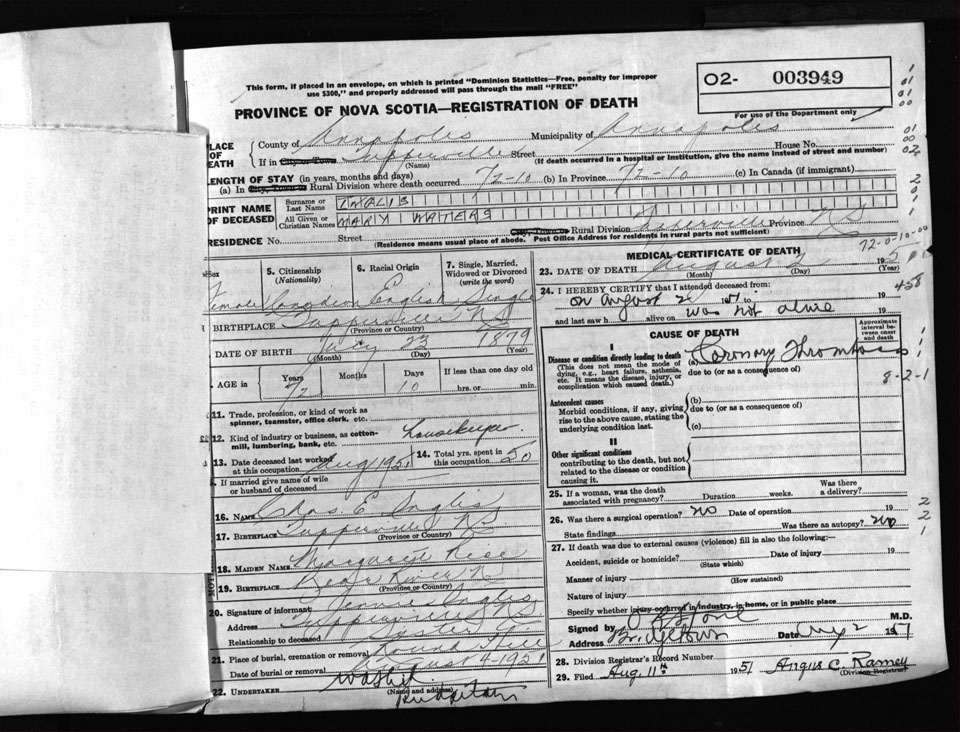 This form, if placed in an envelope, on which is printed "Dominion Statistics—Free, penalty for improper
use $300," and properly addressed will pass through the mail "FREE"
O2- 003949
For use of the Department only
PROVINCE OF NOVA SCOTIA—REGISTRATION OF DEATH
PLACE OF DEATH
County of Annapolis Municipality of Annapolis
If in City or Town Tupperville Street House No.
(Name) (If death occurred in a hospital or institution, give the name instead of street and number)
LENGTH OF STAY (in years, months and days)
(a) In City, Town or Rural Division where death occurred 72-10 (b) In Province 72-10 (c) In Canada (if immigrant)
PRINT NAME OF DECEASED
Surname or Last Name INGLIS
All Given or Christian Names MARY WATERS
RESIDENCE No. Street City, Town or Rural Division Tupperville Province N S.
(Residence means usual place of abode. Post Office Address for residents in rural parts not sufficient)
72-0-10-00
Sex
5. Citizenship (Nationality)
6. Racial Origin
7. Single, Married, Widowed or Divorced (write the word)
Female Canadian English Single
BIRTHPLACE Tupperville N S
(Province or Country)
DATE OF BIRTH July 23 1879
(Month) (Day) (Year)
AGE IN
Years Months Days If less than one day old
72 10 hrs. or min.
11. Trade, profession, or kind of work as
spinner, teamster, office clerk, etc.
12. Kind of industry or business, as cotton-
mill, lumbering, bank, etc. housekeeper.
13. Date deceased last worked at this occupation Aug 1951
14. Total yrs. spent in this occupation 50
If married give name of wife
or husband of deceased
16. NAME Chas. E Inglis
17. BIRTHPLACE Tupperville N S
(Province or Country)
18. MAIDEN NAME Margaret Rice
19. BIRTHPLACE Bear River N S
(Province or Country)
20. Signature of informant Jennie Inglis
Address Tupperville N S
Relationship to deceased Sister
21. Place of burial, cremation or removal Round Hill
Date of burial or removal August 4-1951
22. UNDERTAKER
(Name and address)
Bridgetown
MEDICAL CERTIFICATE OF DEATH
23. DATE OF DEATH August 2 195
(Month) (Day) (Year)
24. I HEREBY CERTIFY that I attended deceased from:
on August 2 1951 19
and last saw h alive on was not alive 19
458
CAUSE OF DEATH
Approximate interval between onset and death
I
Disease or condition directly leading to death
(This does not mean the mode of
dying, e.g., heart failure, asthenia,
etc. It means the disease, injury, or
complication which caused death.)
(a) Coronary Thrombosis
due to (or as a consequence of)
8-2-1
Antecedent causes
Morbid conditions, if any, giving
rise to the above cause, stating the
underlying condition last.
(b)
due to (or as a consequence of)
(c)
II
Other significant conditions
contributing to the death, but not
related to the disease or condition
causing it.
25. If a woman, was the death
associated with pregnancy? Duration weeks. Was there a delivery?
26. Was there a surgical operation? no Date of operation
State findings Was there an autopsy? no
27. If death was due to external causes (violence) fill in also the following:—
Accident, suicide or homicide? Date of injury 19
(State which)
Manner of injury
(How sustained)
Nature of injury
Specify whether injury occurred in industry, in home, or in public place
Signed by M.D.
Address Bridgetown Date Aug 2 1951
28. Division Registrar's Record Number
29. Filed Aug. 11th 1951 Angus C. Ramey
(Division Registrar)